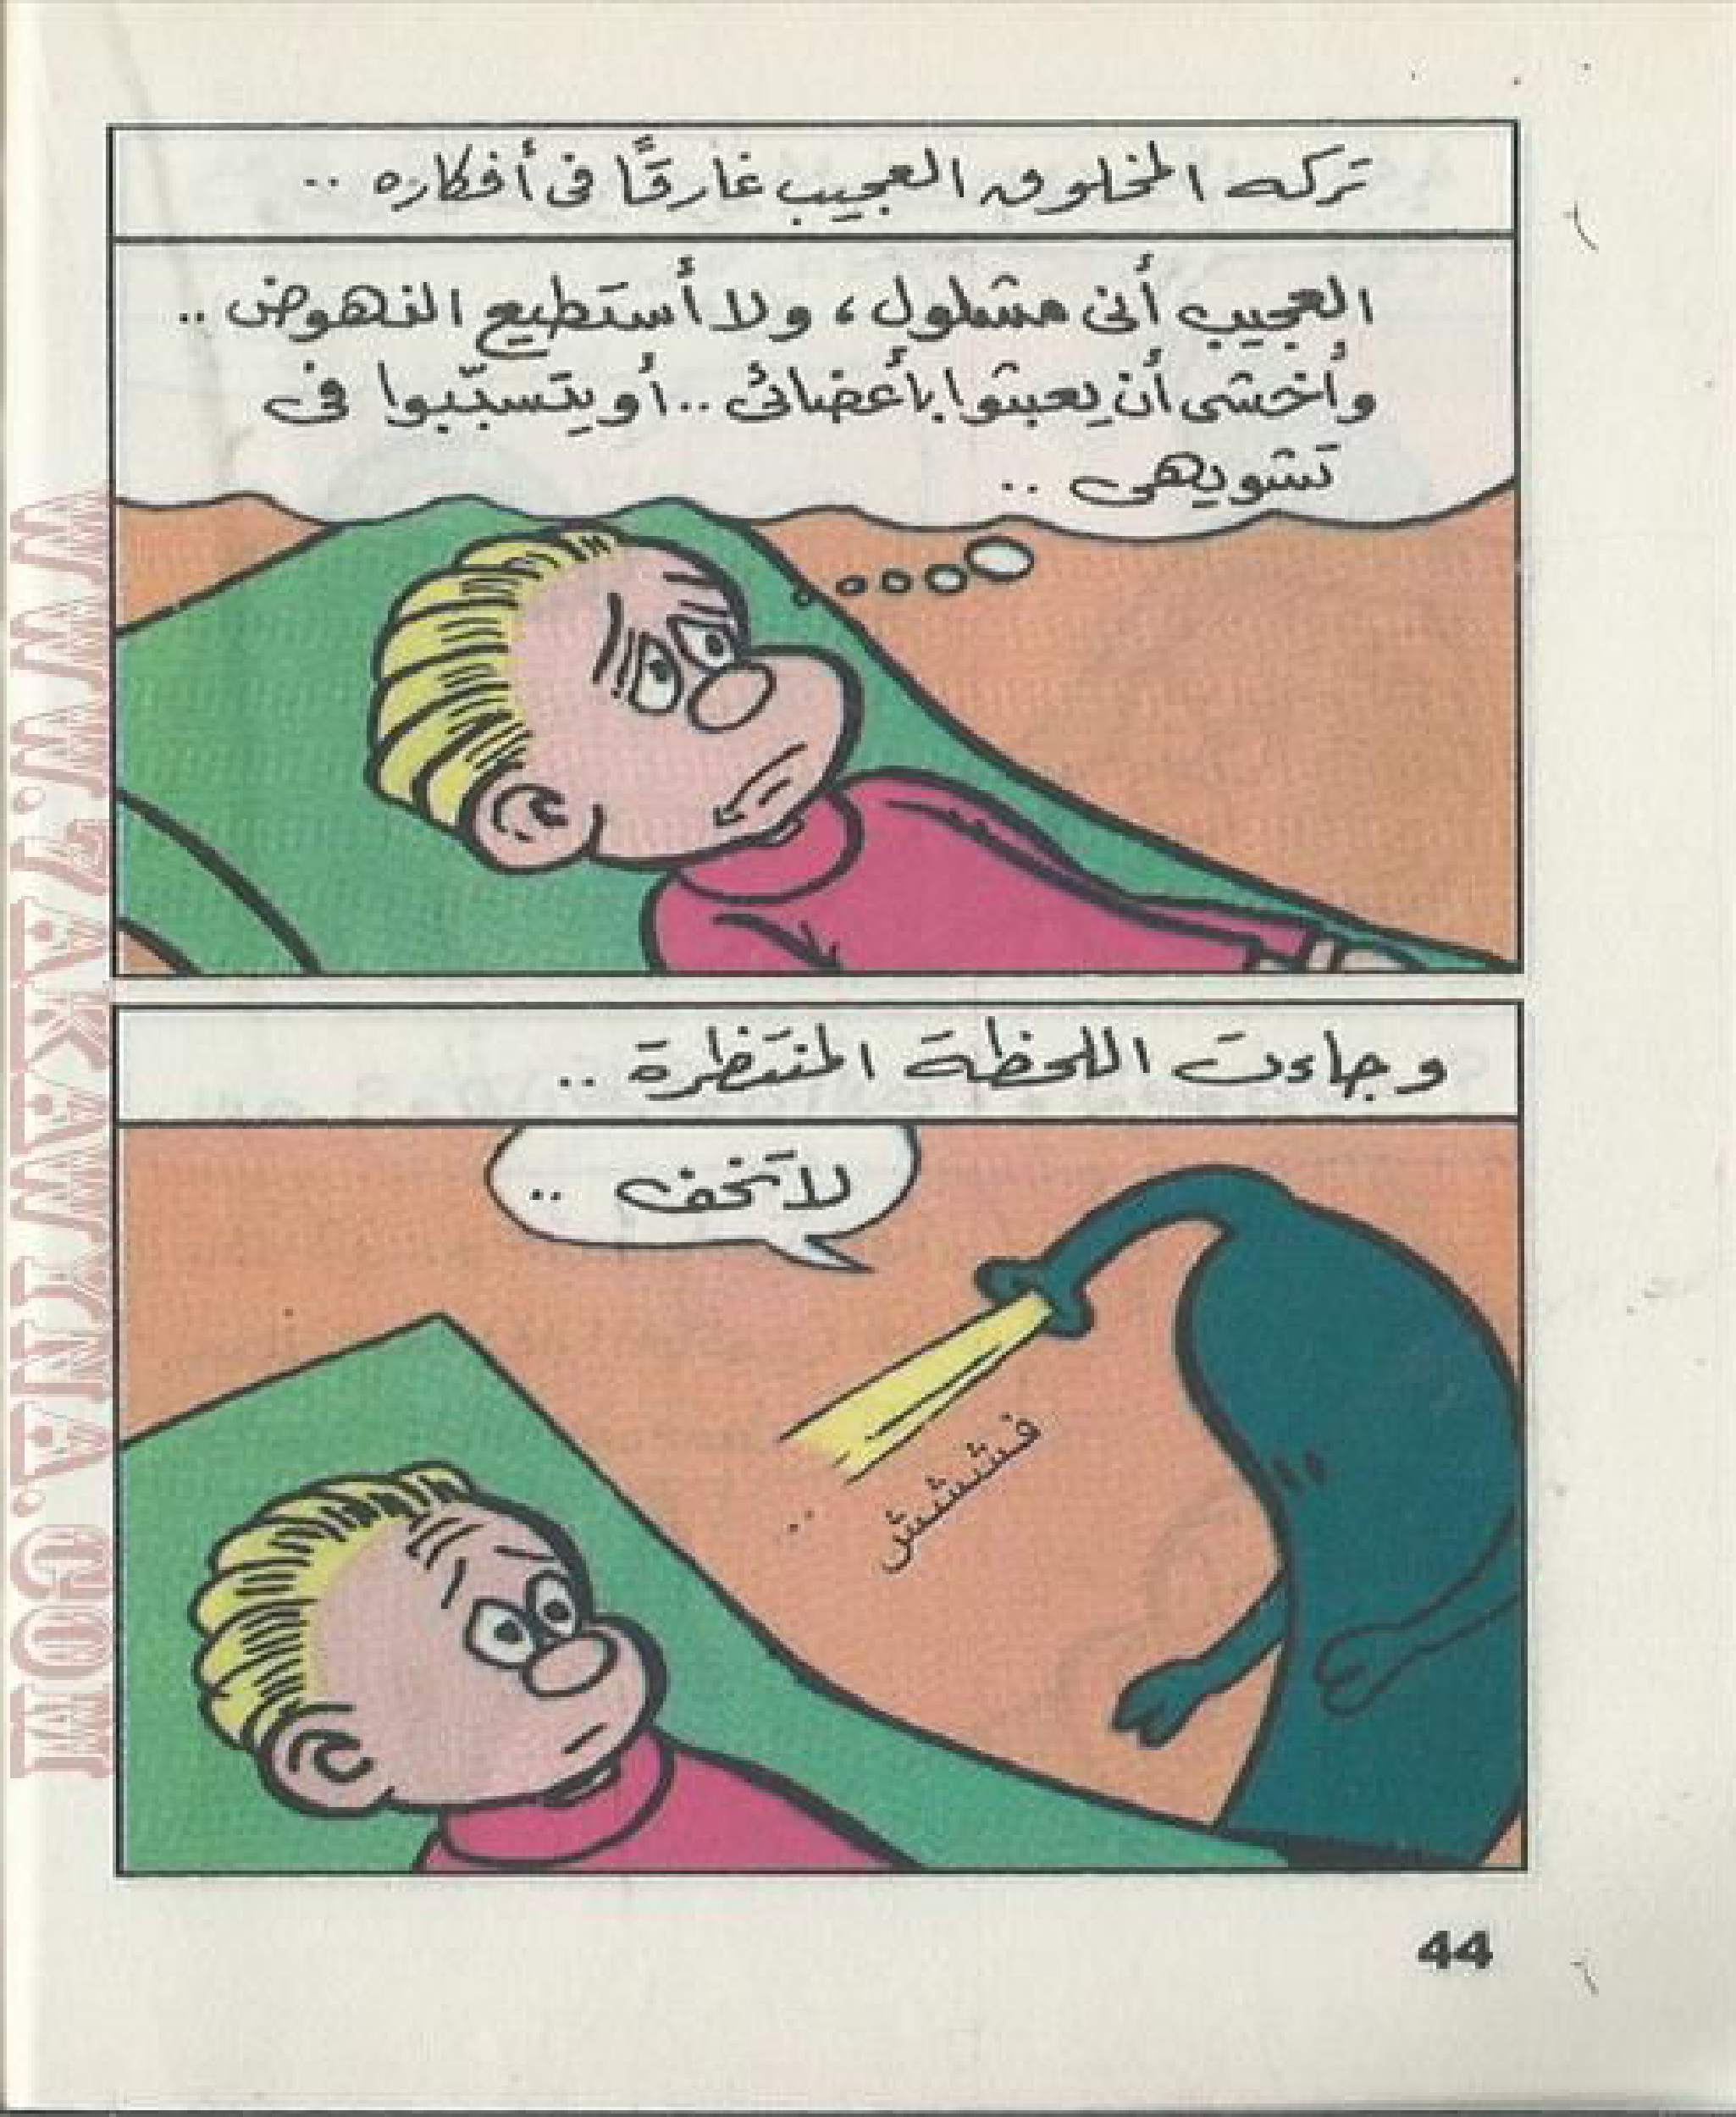 تركه المخلوق العجيب غارقًا فى أفكاره ..
العجيب أنى مشلول، ولا أستطيع النهوض ..
وأخشى أن يعبثوا بأعضائى .. أو يتسبّبوا فى
تشويهى ..
وجاءت اللحظة المنتظرة ..
لا تخف ..
فشششش ..
44
WWW.ZAKAWYNNA.COM